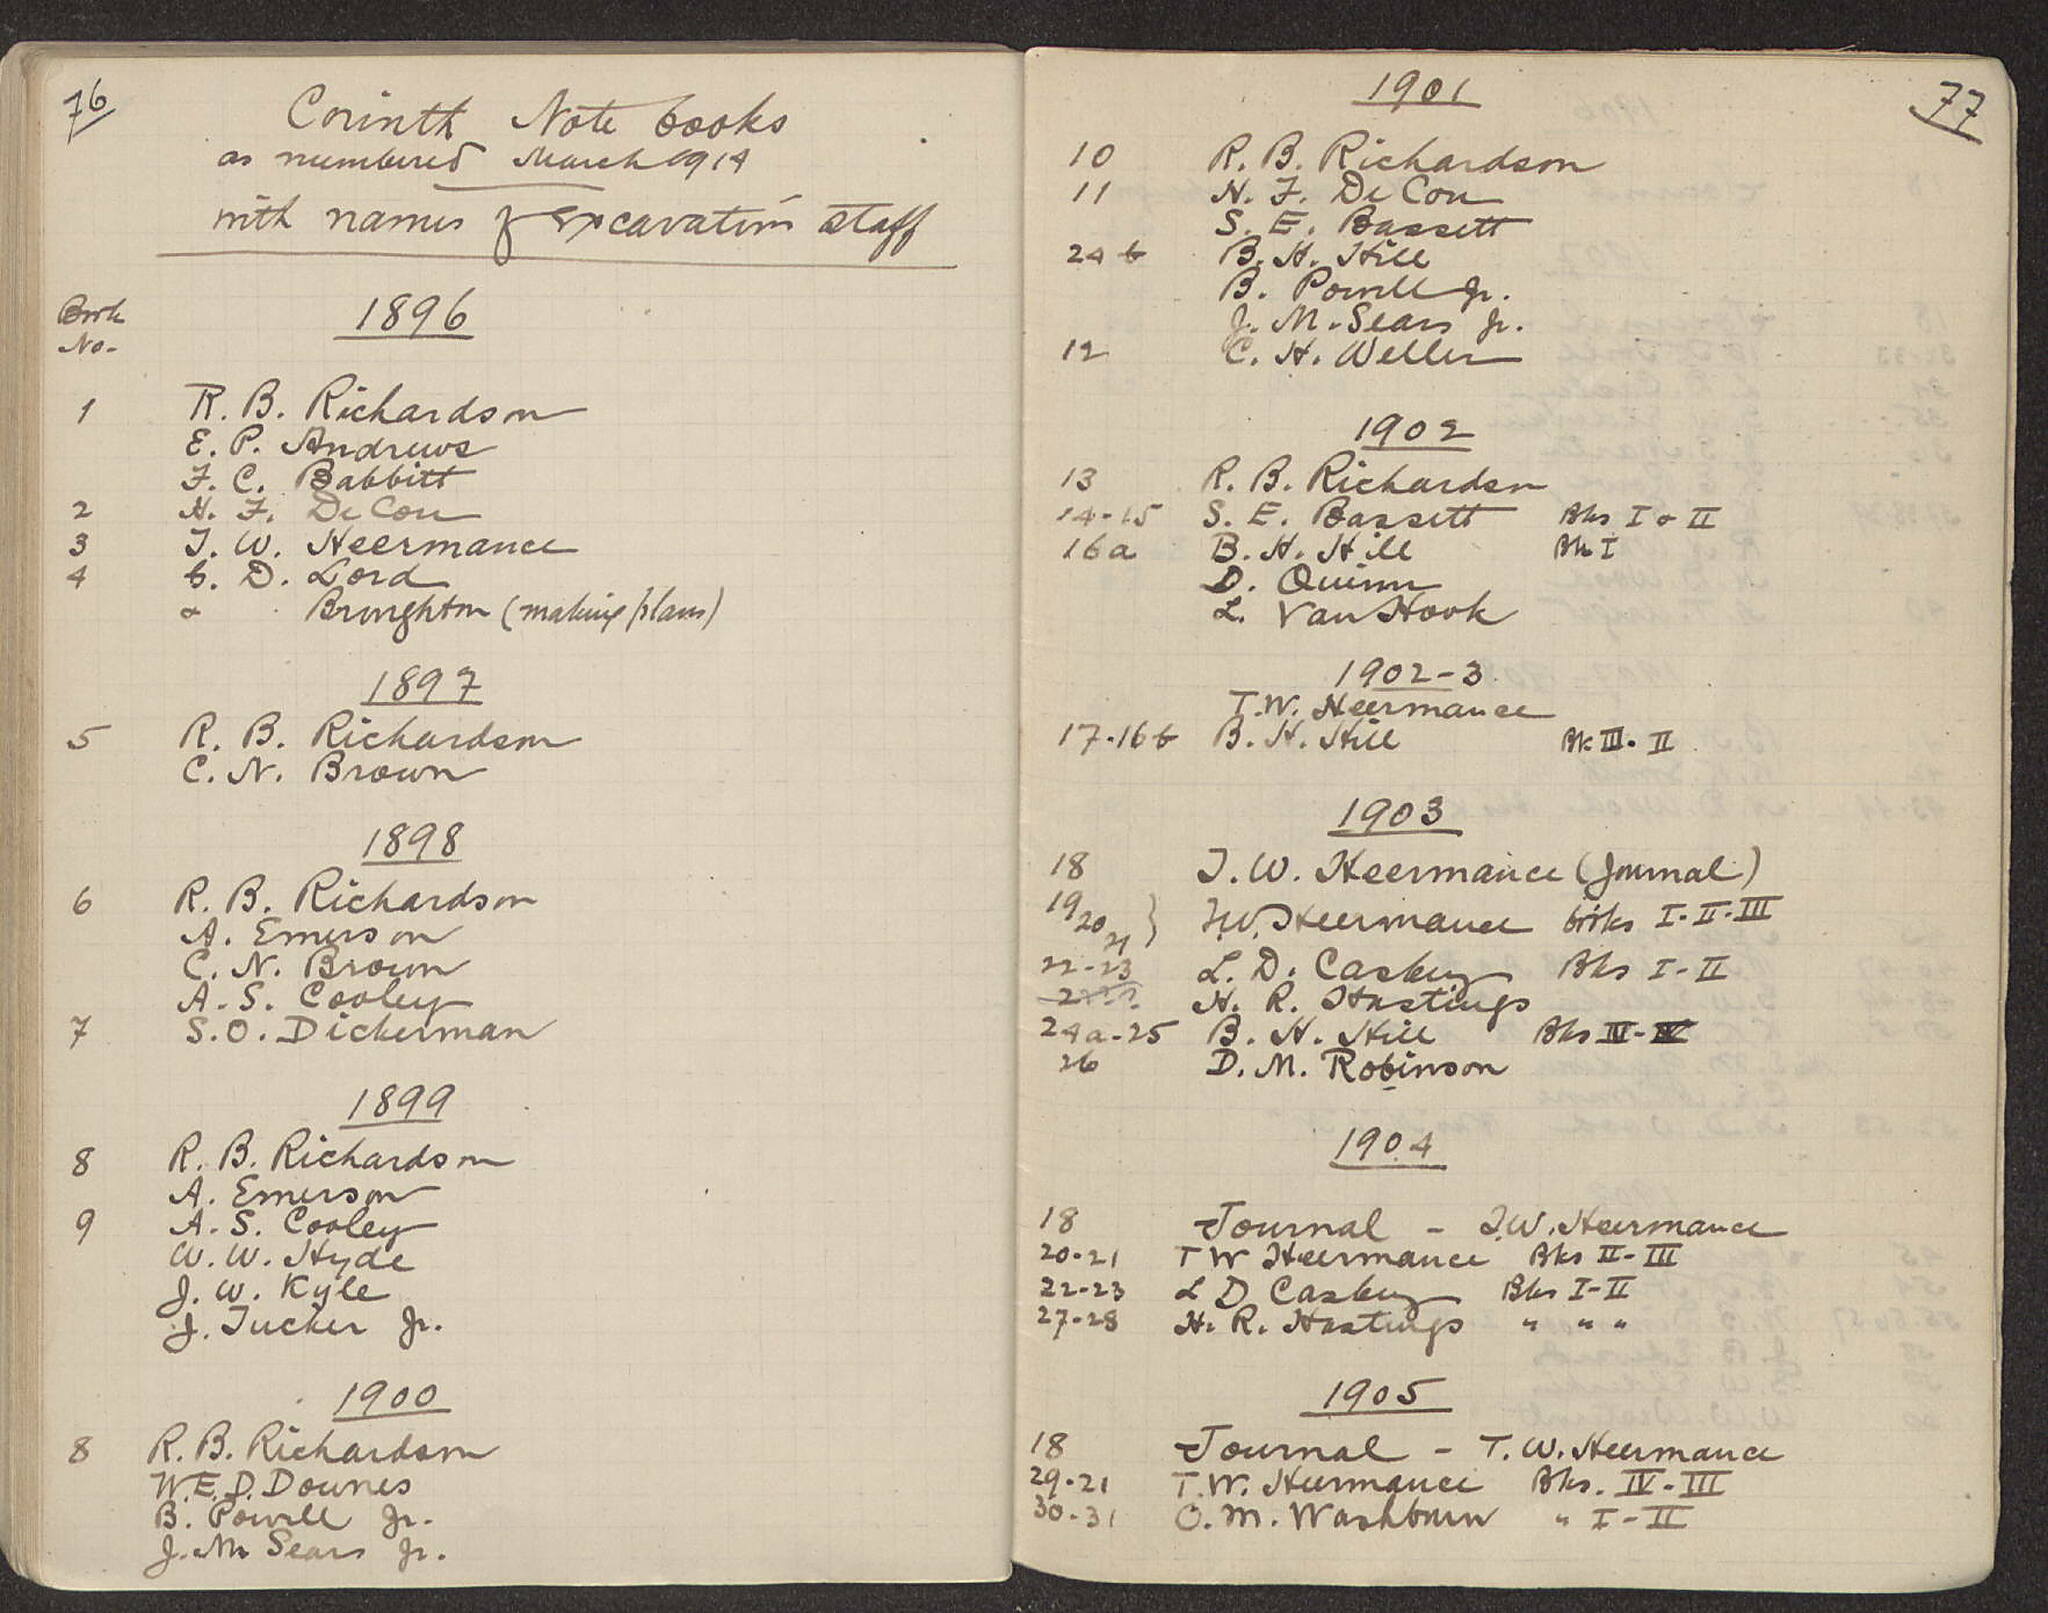 76
Corinth Note books
as numbered March 1914
with names of Excavation staff
Book
No.
1896
1 R. B. Richardson
E. P. Andrews
F. C. Babbitt
2 H. F. De Cou
3 T. W. Heermance
4 G. D. Lord
& Broughton (making plans)
1897
5 R. B. Richardson
C. N. Brown
1898
6 R. B. Richardson
A. Emerson
C. N. Brown
A. S. Cooley
7 S. O. Dickerman
1899
8 R. B. Richardson
A. Emerson
9 A. S. Cooley
W. W. Hyde
J. W. Kyle
J. Tucker Jr.
1900
8 R. B. Richardson
W. E. D. Downes
B. Powell Jr.
J. M. Sears Jr.
77
1901
10 R. B. Richardson
11 H. F. De Cou
S. E. Bassett
24 b B. H. Hill
B. Powell Jr.
J. M. Sears Jr.
12 C. H. Weller
1902
13 R. B. Richardson
14-15 S. E. Bassett Bks I & II
16a B. H. Hill Bk I
D. Quinn
L. Van Hook
1902-3
T. W. Heermance
17-16b B. H. Hill Bk III - II
1903
18 T. W. Heermance (Journal)
19 20 21 } T. W. Heermance books I - II - III
22-23 L. D. Caskey Bks I - II
H. R. Hastings
24a-25 B. H. Hill Bks IV - V
26 D. M. Robinson
1904
18 Journal - T. W. Heermance
20-21 T W Heermance Bks II - III
22-23 L D Caskey Bks I - II
27-28 H. R. Hastings " " "
1905
18 Journal - T. W. Heermance
29-21 T. W. Heermance Bks. IV - III
30-31 O. M. Washburn " I - II